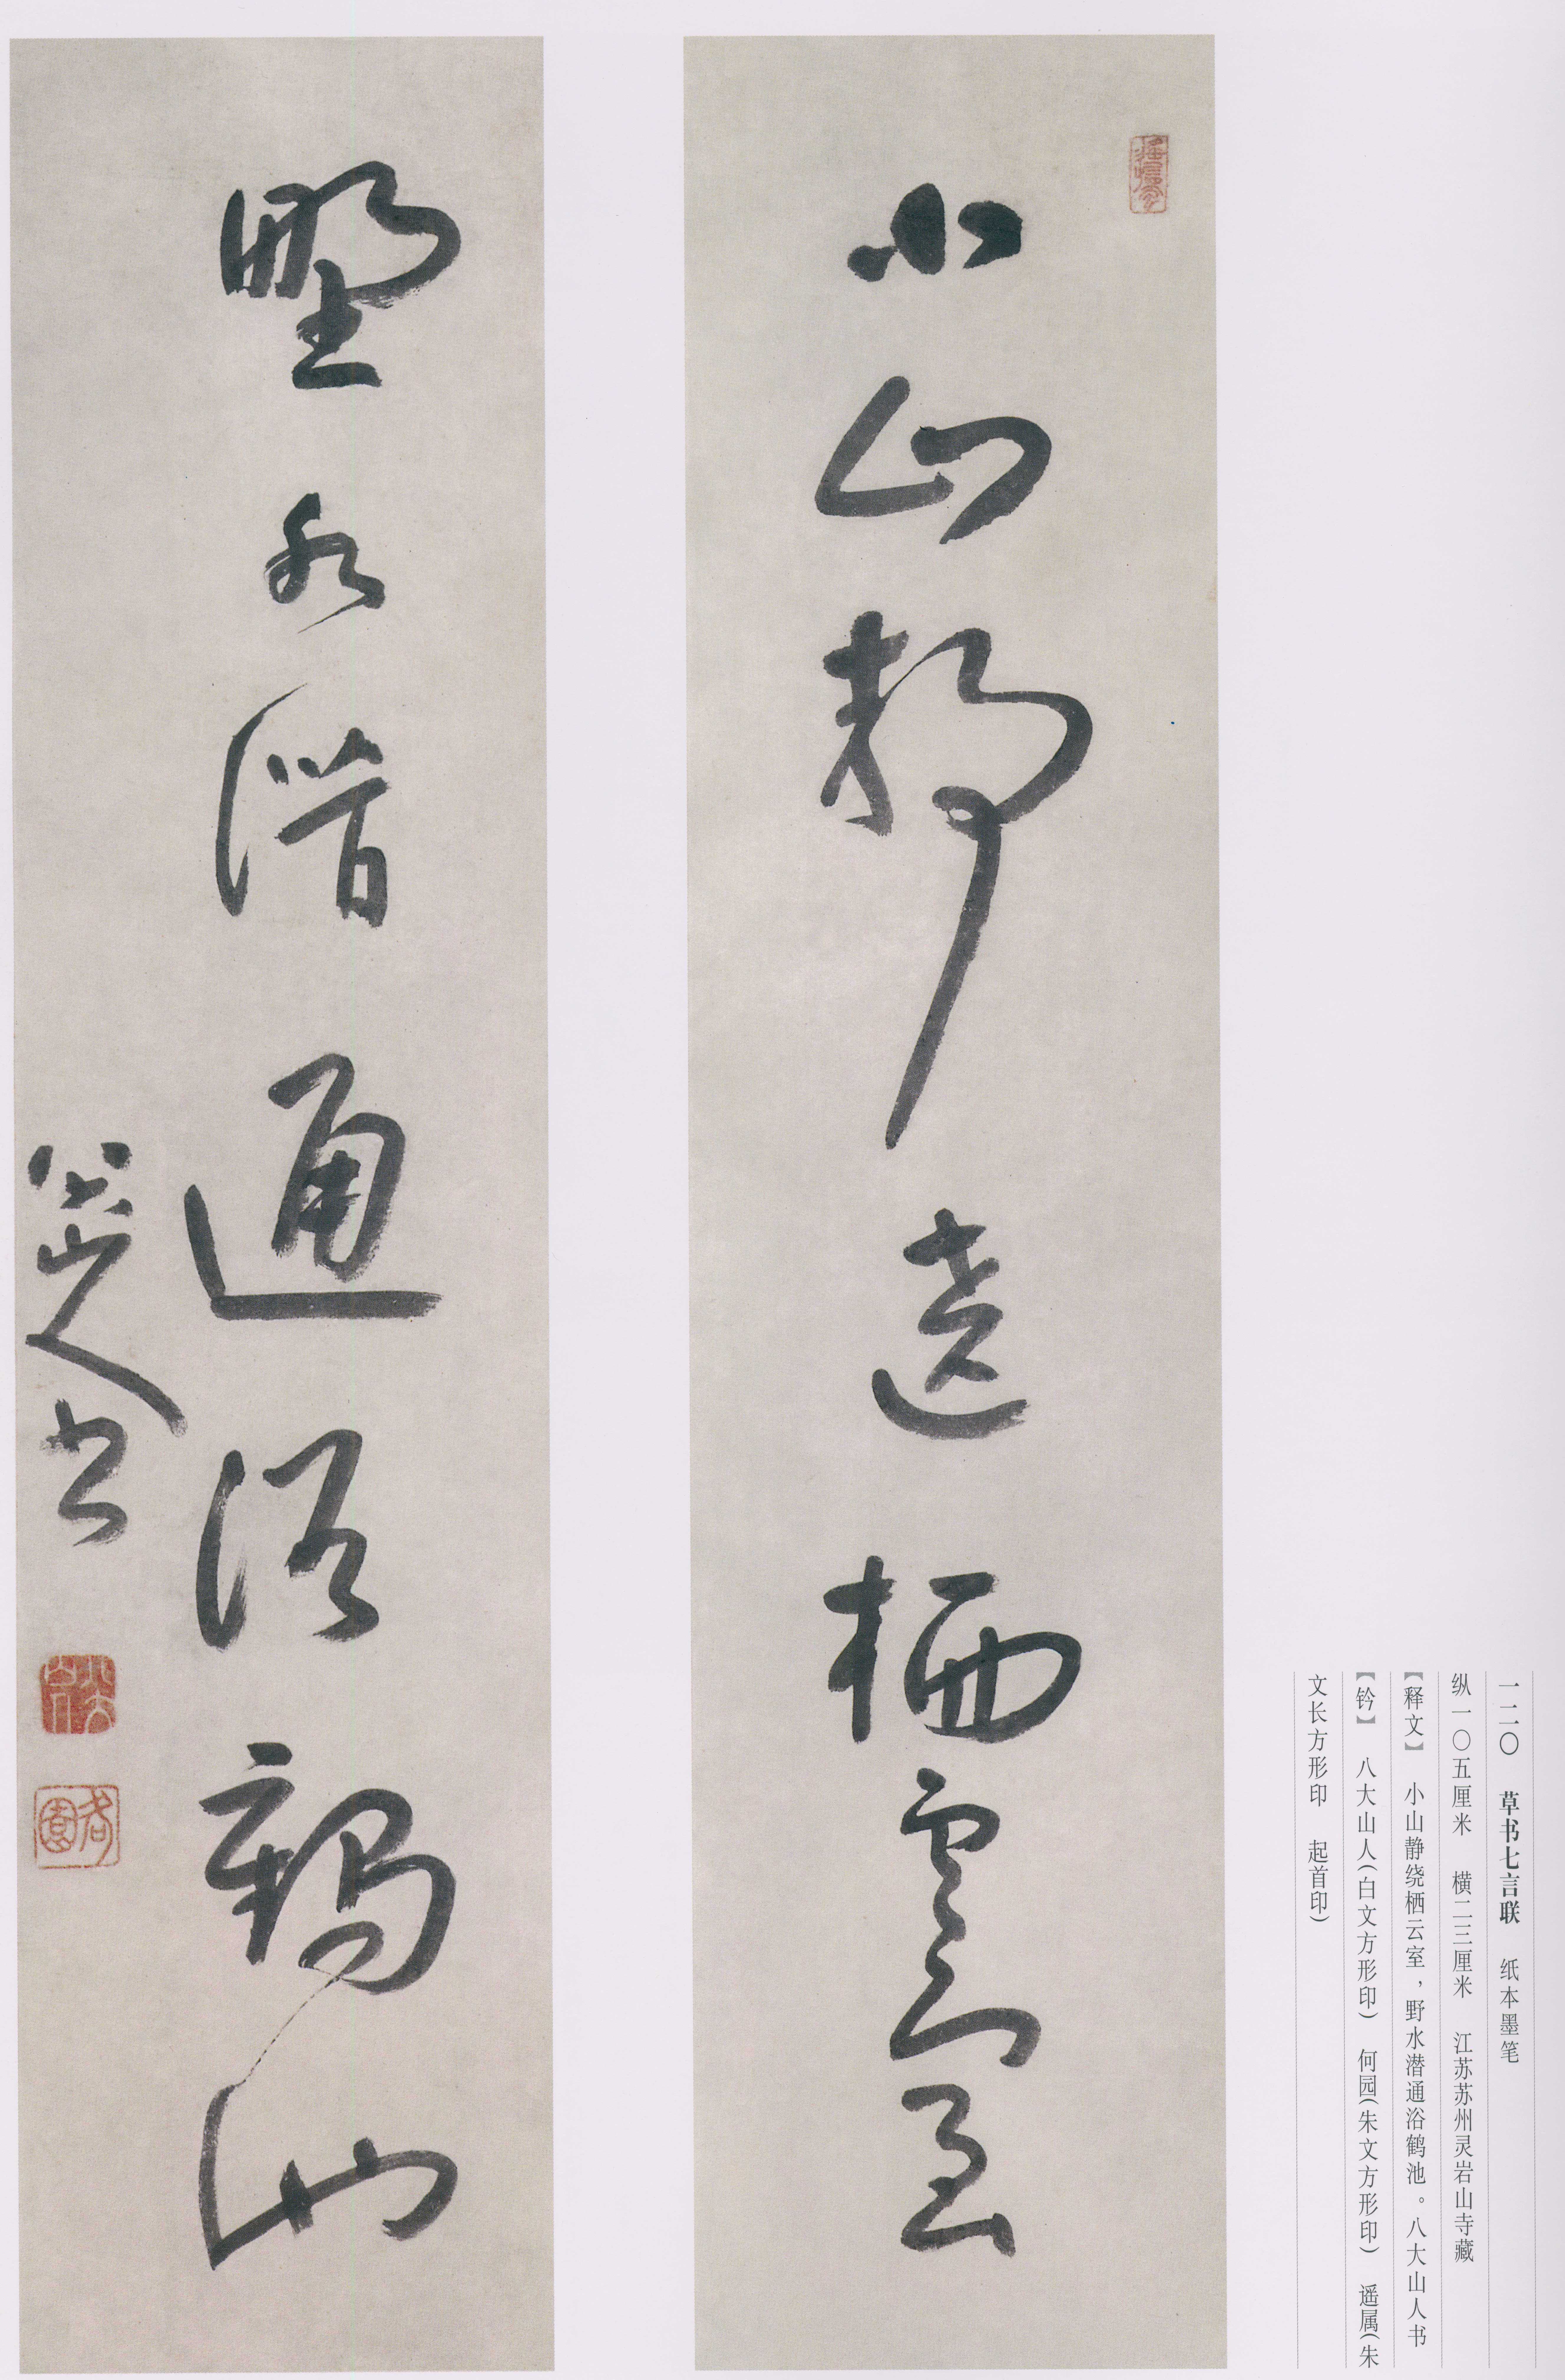 小山靜遶栖雲室
野水潛通浴鶴池
八大山人書
八大山人
何園
一二〇 草书七言联 纸本墨笔
纵一〇五厘米 横二三厘米 江苏苏州灵岩山寺藏
【释文】 小山静绕栖云室，野水潜通浴鹤池。八大山人书
【钤】 八大山人（白文方形印） 何园（朱文方形印） 遥属（朱
文长方形印 起首印）